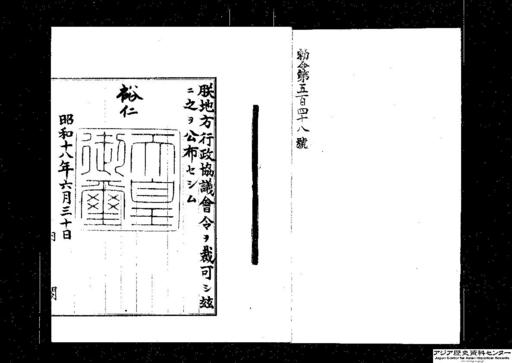 勅令第五百四十八號
朕地方行政協議會令ヲ裁可シ玆
ニ之ヲ公布セシム
裕仁
天皇
御璽
昭和十八年六月三十日
アジア歴史資料センター
Japan Center for Asian Historical Records